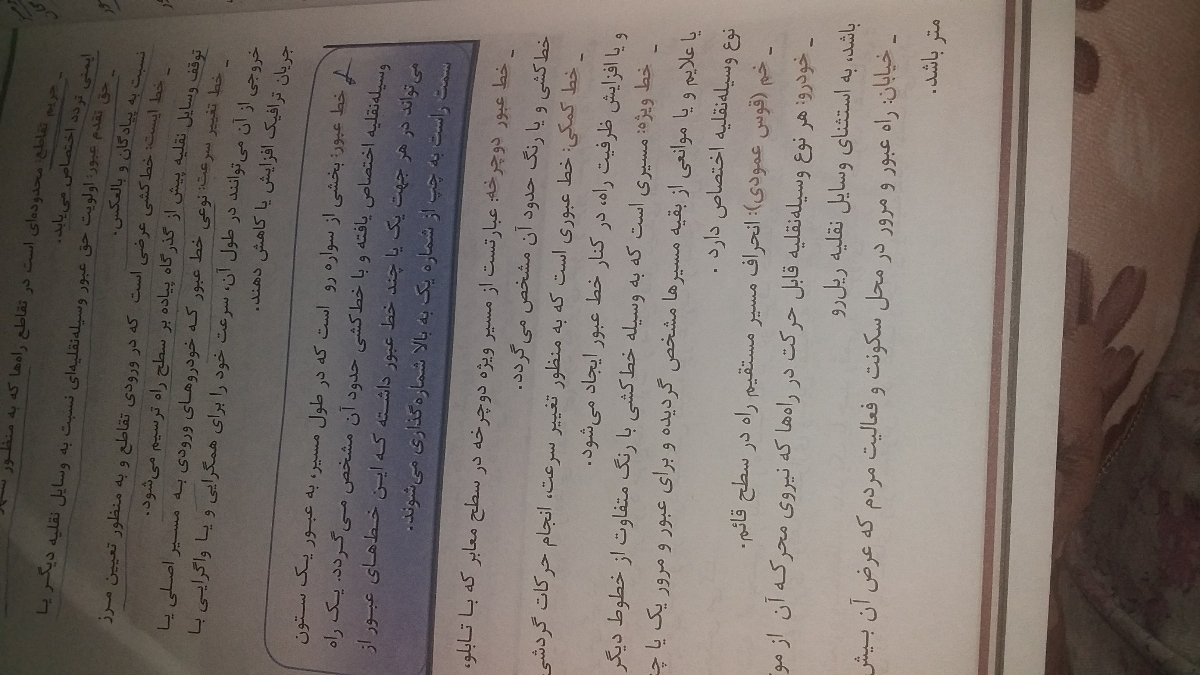 حریم تقاطع: محدوده‌ای است در تقاطع راه‌ها که به منظور
ایمنی تردد اختصاص می‌یابد.
- حق تقدم عبور: اولویت حق عبور وسیله‌نقلیه‌ای نسبت به وسایل نقلیه دیگر یا
نسبت به پیادگان و بالعکس.
- خط ایست: خط‌کشی عرضی است که در ورودی تقاطع و به منظور تعیین مرز
توقف وسایل نقلیه پیش از گذرگاه پیاده بر سطح راه ترسیم می‌شود.
- خط تغییر سرعت: نوعی خط عبور که خودروهای ورودی به مسیر اصلی یا
خروجی از آن می‌توانند در طول آن، سرعت خود را برای همگرایی و یا واگرایی با
جریان ترافیک افزایش یا کاهش دهند.
خط عبور: بخشی از سواره رو است که در طول مسیر، به عبور یک ستون
وسیله‌نقلیه اختصاص یافته و با خط‌کشی حدود آن مشخص می‌گردد. یک راه
می‌تواند در هر جهت یک یا چند خط عبور داشته که این خط‌های عبور از
سمت راست به چپ از شماره یک به بالا شماره‌گذاری می‌شوند.
- خط عبور دوچرخه: عبارتست از مسیر ویژه دوچرخه در سطح معابر که با تابلو،
خط‌کشی و یا رنگ حدود آن مشخص می‌گردد.
- خط کمکی: خط عبوری است که به منظور تغییر سرعت، انجام حرکات گردشی
و یا افزایش ظرفیت راه، در کنار خط عبور ایجاد می‌شود.
- خط ویژه: مسیری است که به وسیله خط‌کشی با رنگ متفاوت از خطوط دیگر
یا علایم و یا موانعی از بقیه مسیرها مشخص گردیده و برای عبور و مرور یک یا
نوع وسیله‌نقلیه اختصاص دارد.
- خم (قوس عمودی): انحراف مسیر مستقیم راه در سطح قائم.
- خودرو: هر نوع وسیله‌نقلیه قابل حرکت در راه‌ها که نیروی محرکه آن از
باشد، به استثنای وسایل نقلیه ریل‌رو
- خیابان: راه عبور و مرور در محل سکونت و فعالیت مردم که عرض آن بیش
متر باشد.